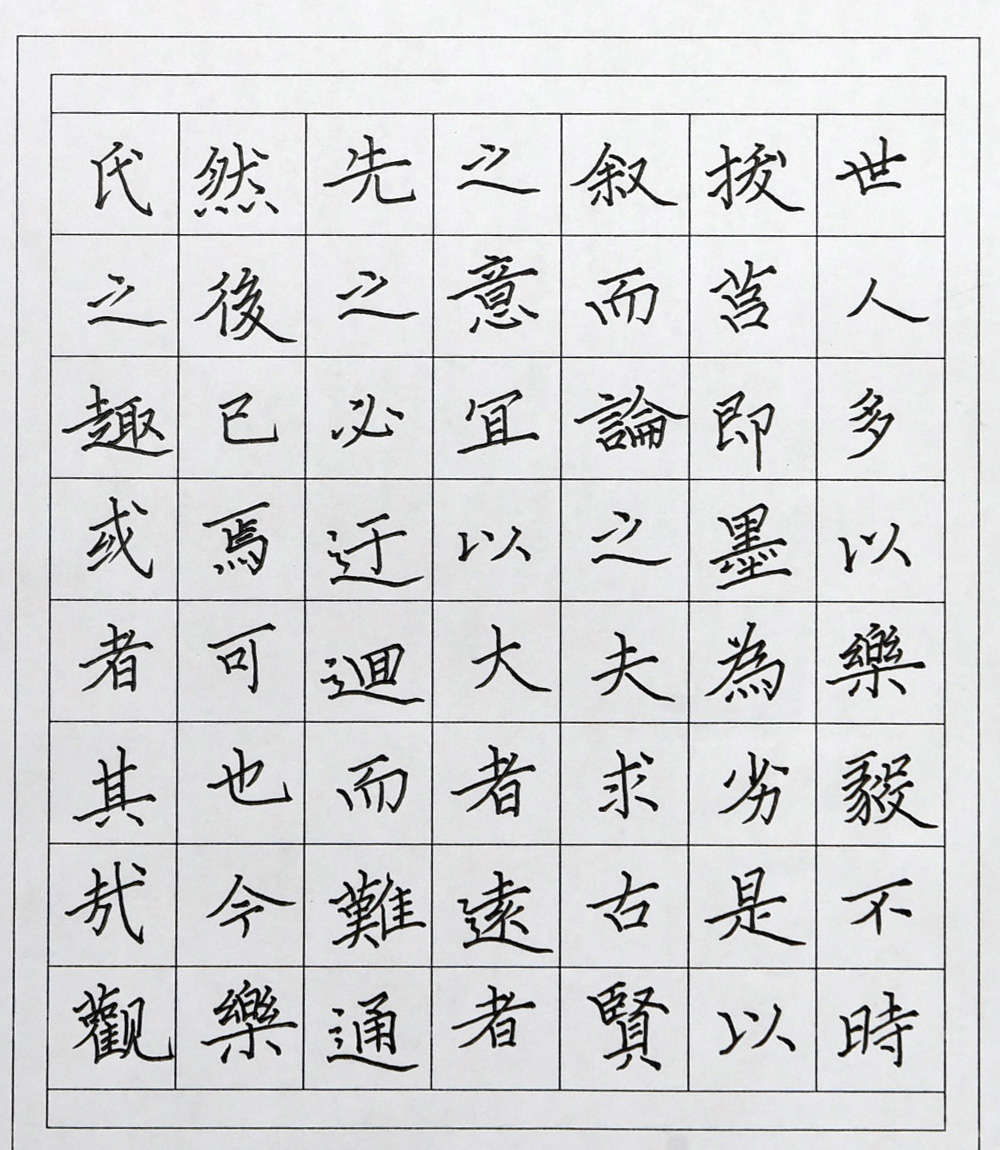 世人多以樂毅不時
拔莒即墨為劣是以
叙而論之夫求古賢
之意宜以大者遠者
先之必迂迴而難通
然後已焉可也今樂
氏之趣或者其㢤觀